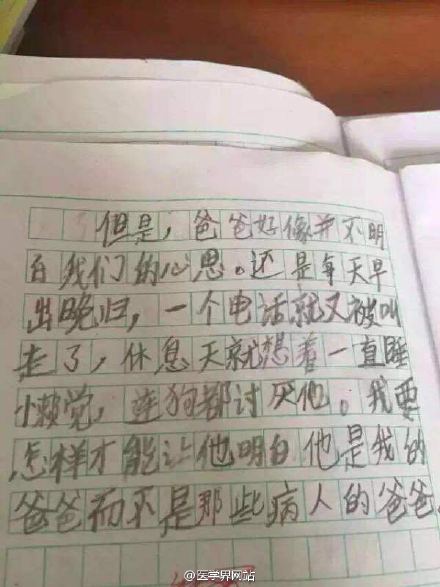 但是，爸爸好像并不明
白我们的心思。还是每天早
出晚归，一个电话就又被叫
走了，休息天就想着一直睡
懒觉，连狗都讨厌他。我要
怎样才能让他明白他是我的
爸爸而不是那些病人的爸爸.
@医学界网站